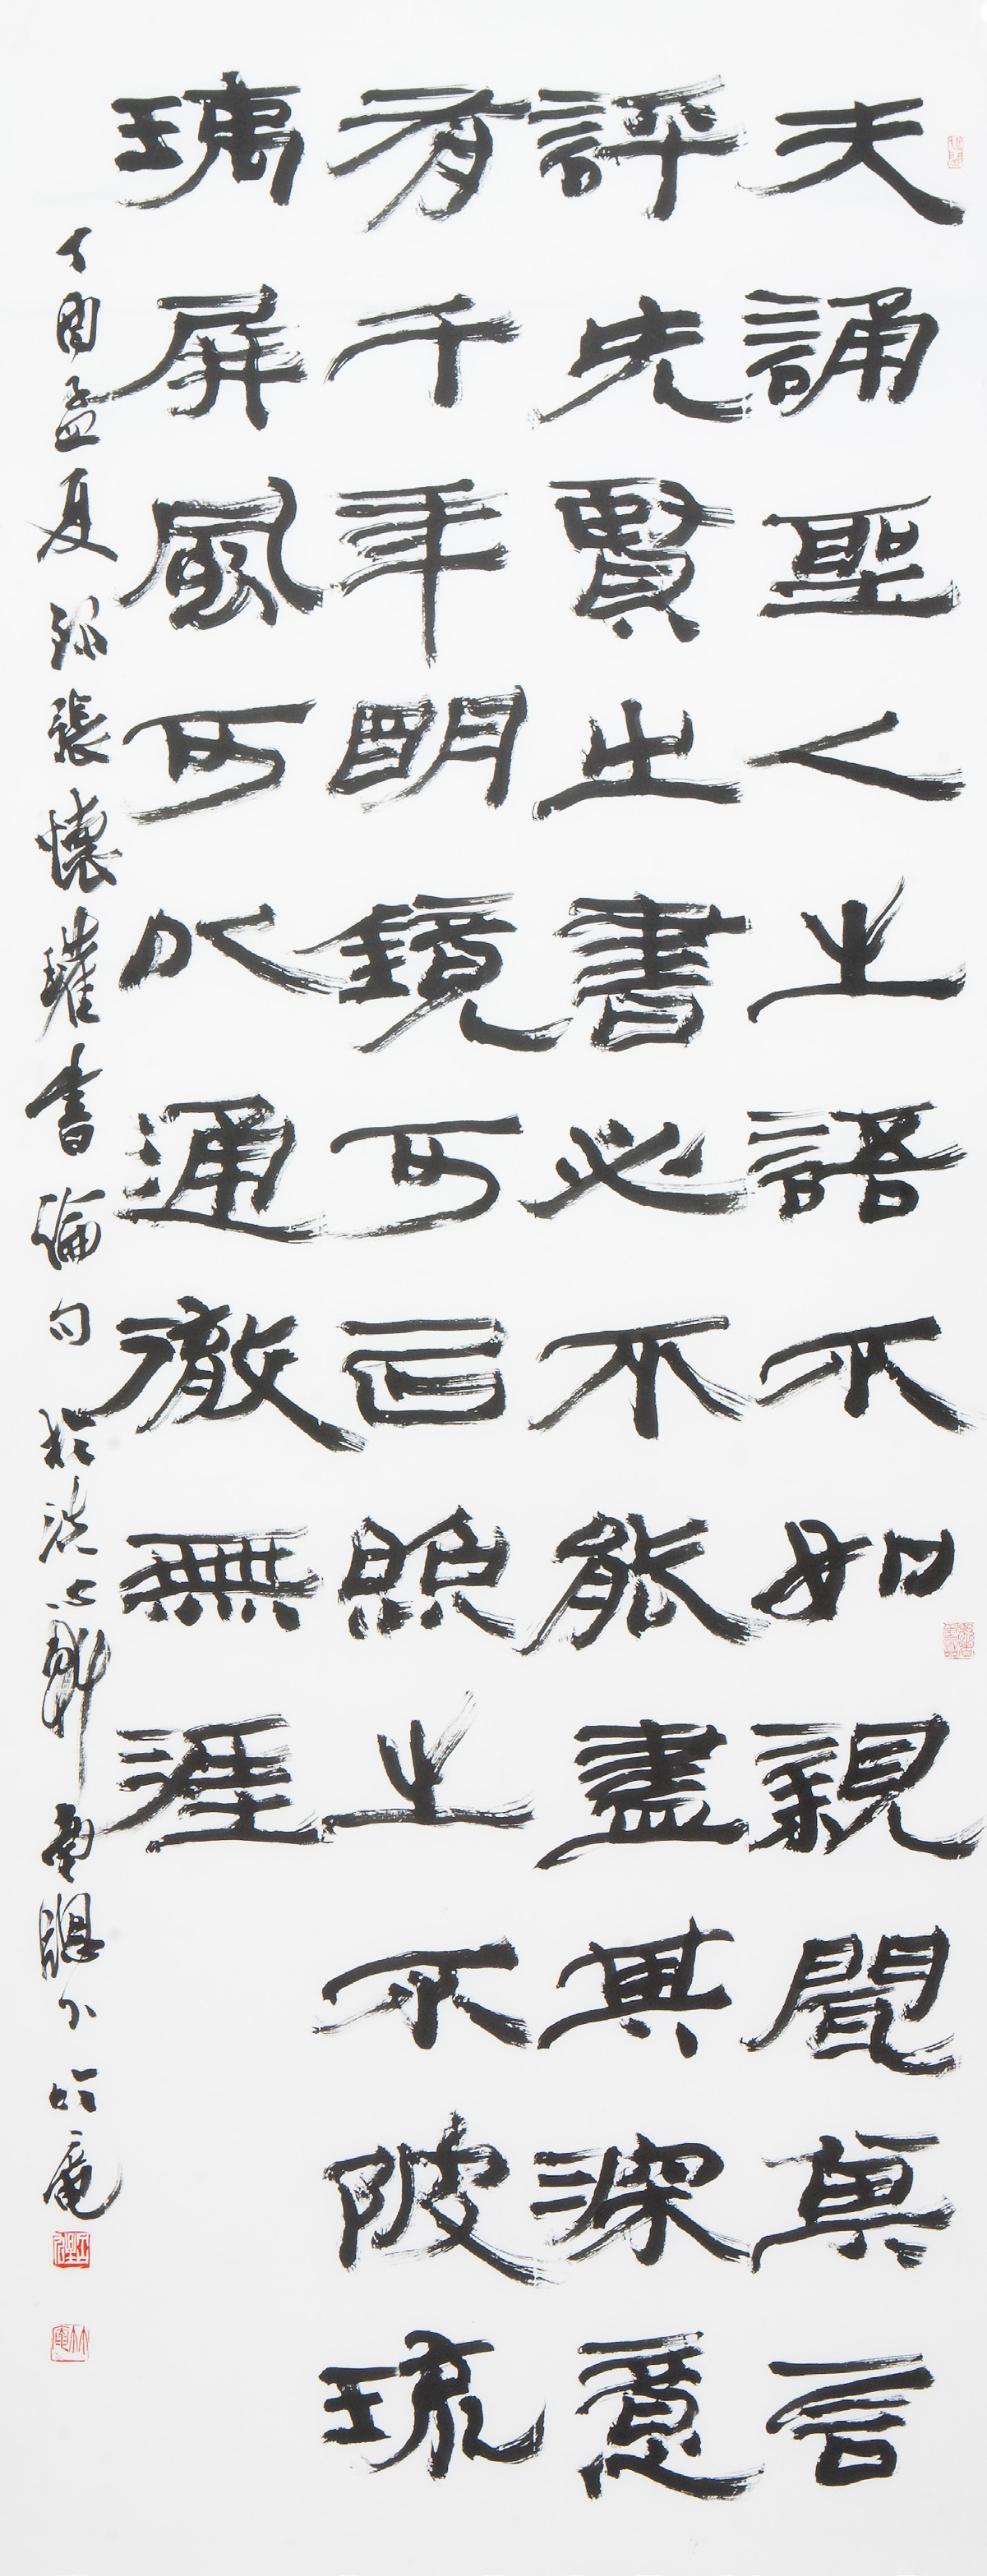 夫誦聖人之語不如親聞其言
評先賢之書必不能盡其深意
有千年明鏡可以照之不陂琉
璃屏風可以通徹無涯
丁酉孟夏張懷瓘書論句於洗心